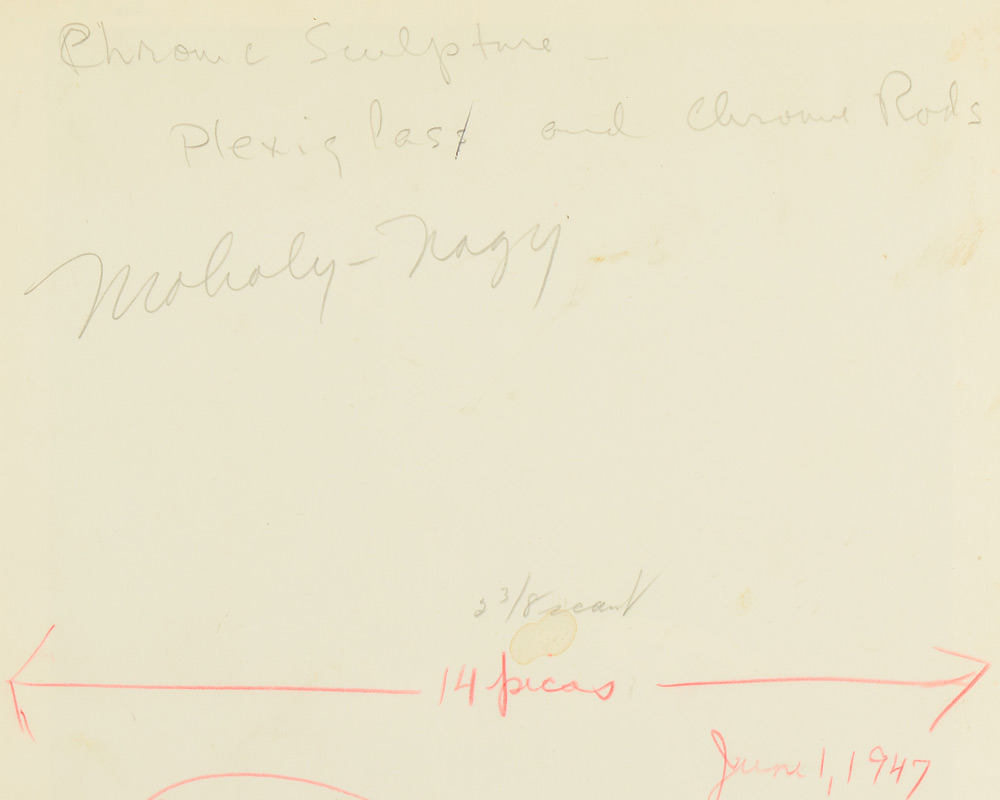 Chrome Sculpture –
Plexiglass and Chrome Rods
Moholy-Nagy
2 3/8 scant
14 picas
June 1, 1947